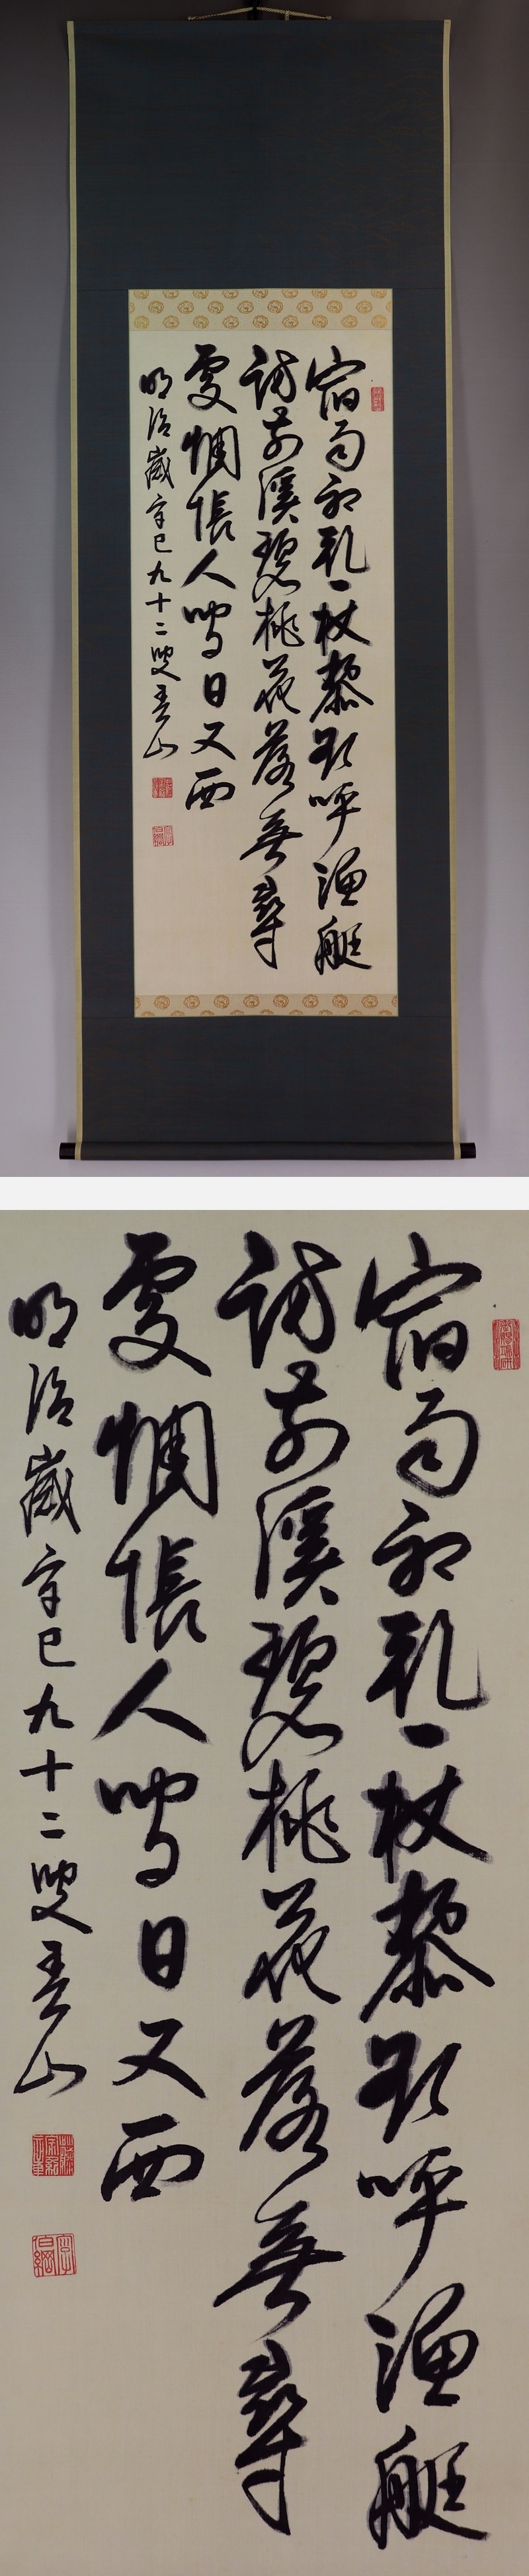 宿雨初乾一杖藜欲呼漁艇
訪前溪碧桃花落無尋
處惆悵人家日又西
明治歲辛巳九十二叟春山